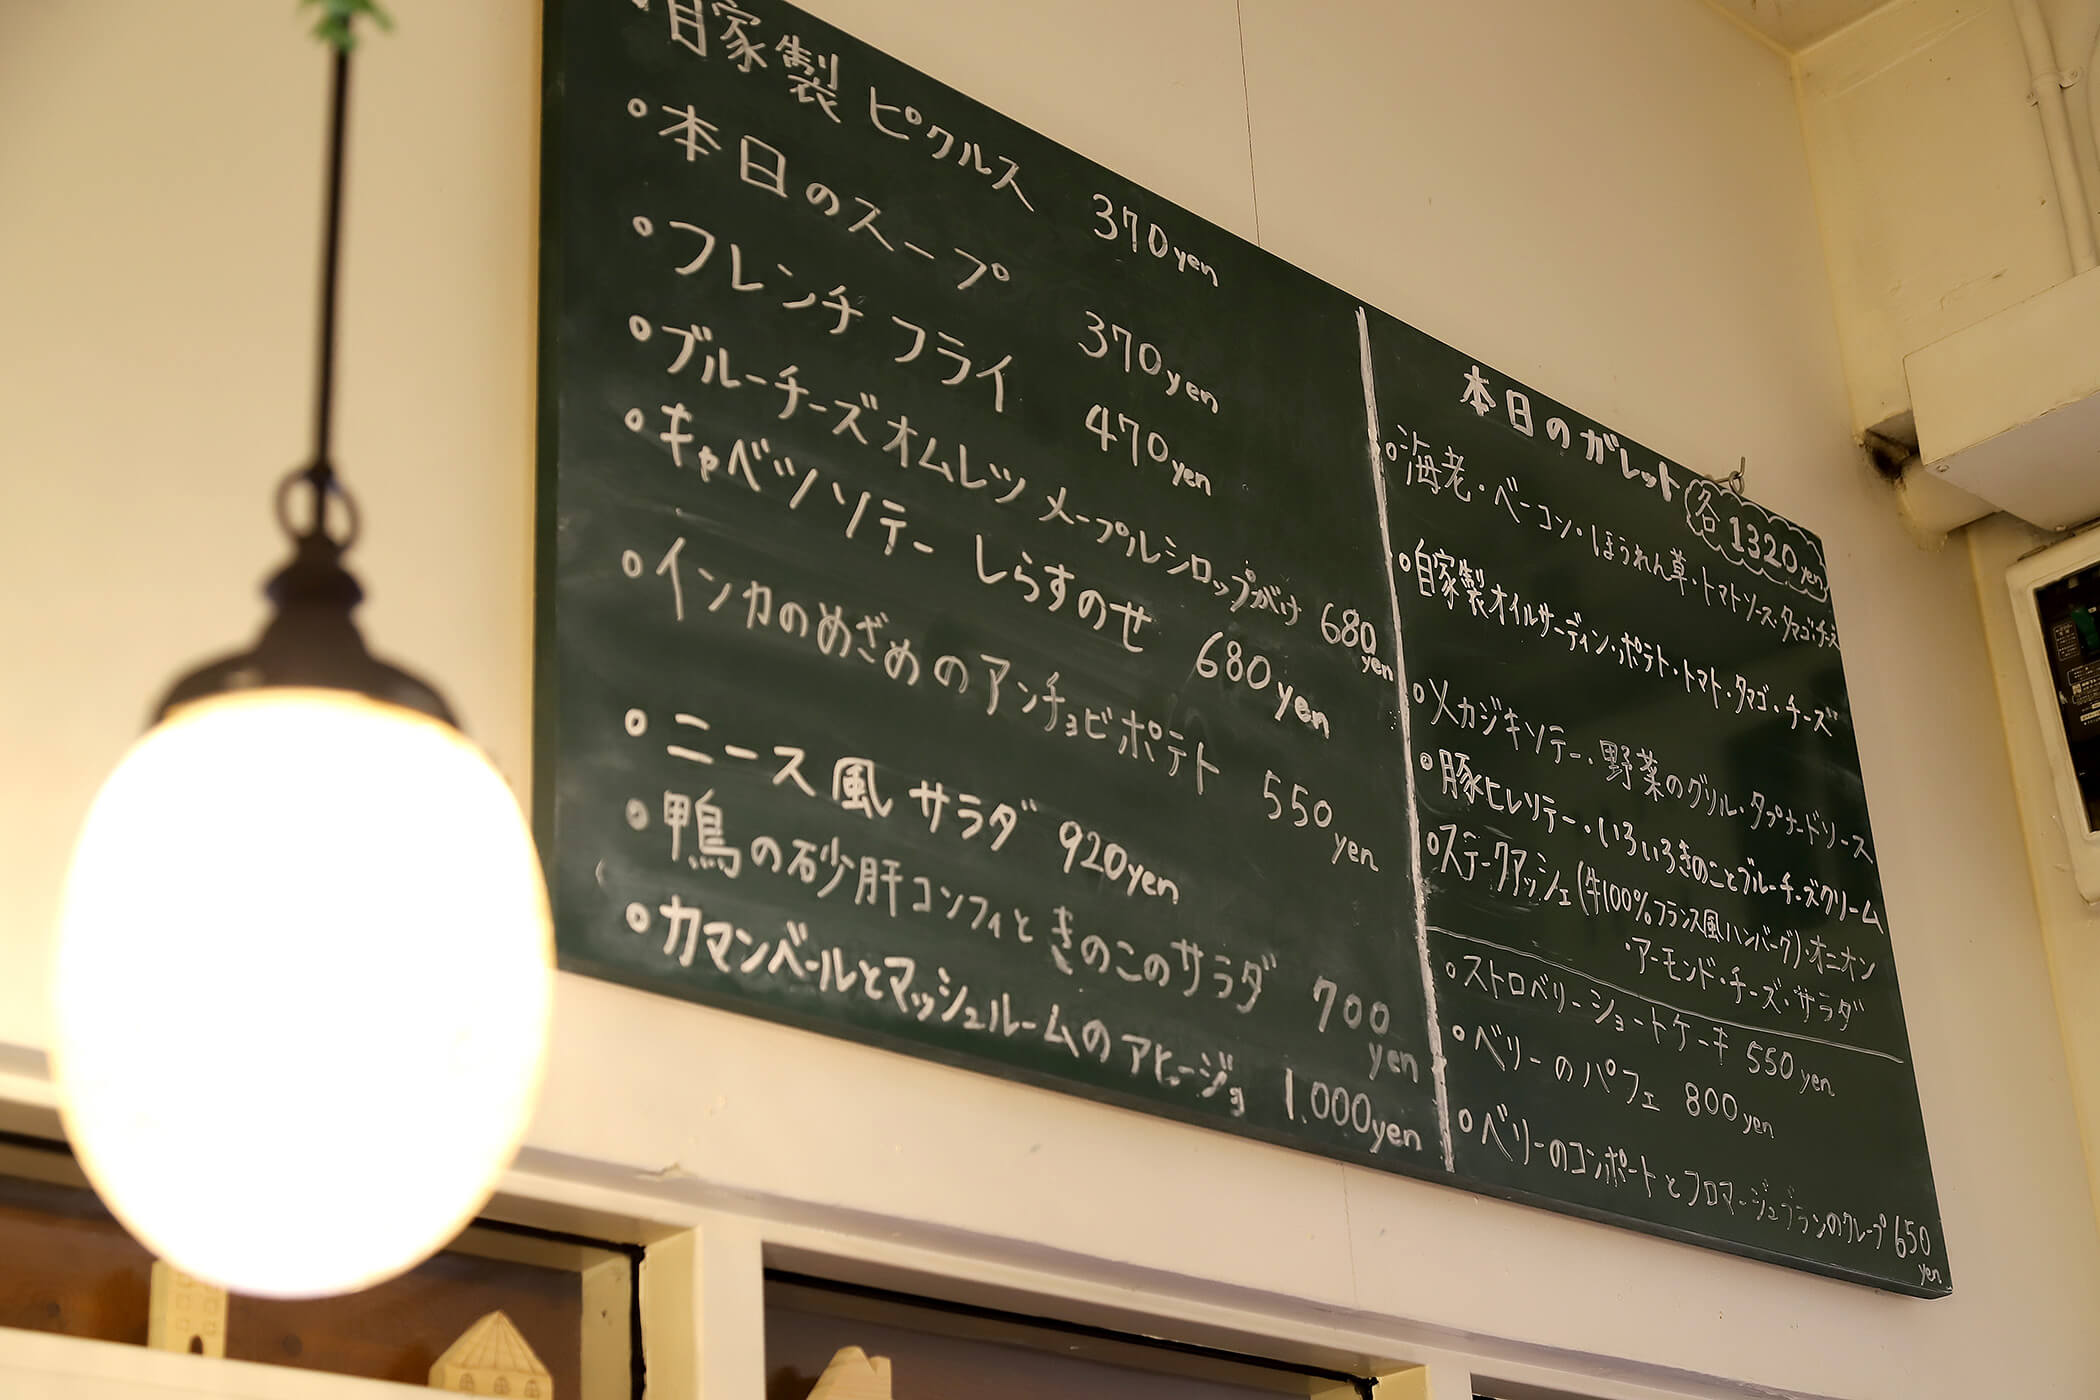 ・自家製 ピクルス 370yen
・本日のスープ 370yen
・フレンチ フライ 470yen
・ブルーチーズ オムレツ メープルシロップがけ 680yen
・キャベツ ソテー しらすのせ 680yen
・インカのめざめのアンチョビポテト 550yen
・ニース風 サラダ 920yen
・鴨の砂肝コンフィときのこのサラダ 700yen
・カマンベールとマッシュルームのアヒージョ 1,000yen
本日のガレット 各1320yen
・海老・ベーコン・ほうれん草・トマトソース・タマゴ・チーズ
・自家製オイルサーディン・ポテト・トマト・タマゴ・チーズ
・メカジキソテー・野菜のグリル・タプナードソース
・豚ヒレソテー・いろいろきのことブルーチーズクリーム
・ステークアッシェ(牛100%フランス風ハンバーグ)・オニオン
・アーモンド・チーズ・サラダ
・ストロベリーショートケーキ 550yen
・ベリーのパフェ 800yen
・ベリーのコンポートとフロマージュブランのクレープ 650yen